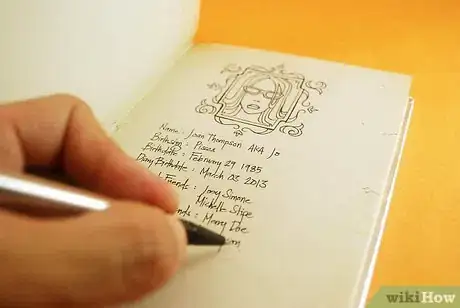 Name: Joan Thompson AKA Jo
Birthsign: Pisces
Birthdate: February 29 1985
Diary Birthdate: March 03 2013
Friends: Joey Simone
Michelle Stipe
: Mary Doe
wikiHow